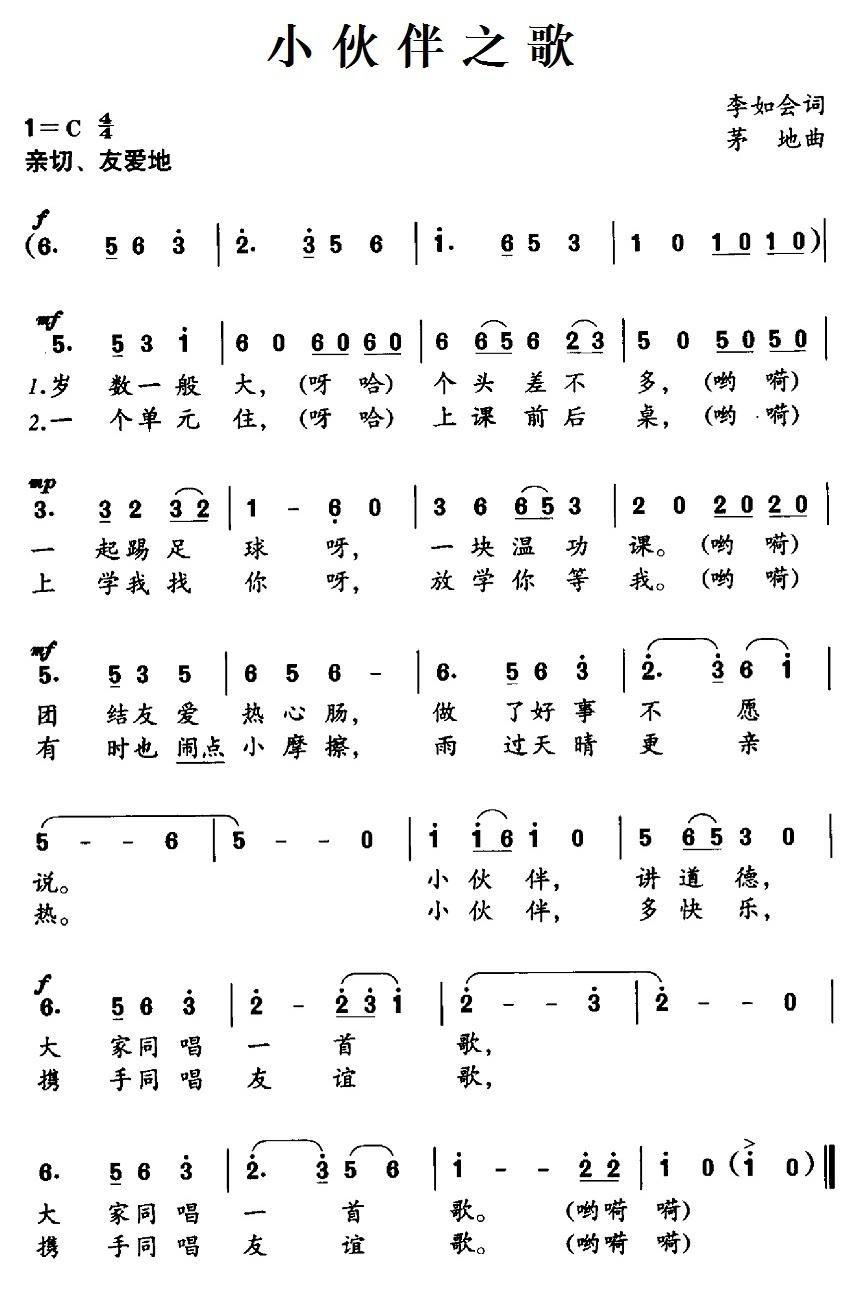 小伙伴之歌
1=C 4/4
李如会词
亲切、友爱地
茅 地曲
f
(6. 5 6 3̇ | 2̇. 3̇ 5 6 | 1̇. 6 5 3 | 1 0 1 0 1 0) |
mf
5. 5 3 1̇ | 6 0 6 0 6 0 | 6 6 5 6 2 3 | 5 0 5 0 5 0 |
1.岁 数一般 大,(呀 哈) 个头差不 多,(哟 嗬)
2.一 个单元 住,(呀 哈) 上课前后 桌,(哟 嗬)
mp
3. 3 2 3 2 | 1 - 6̣ 0 | 3 6 6 5 3 | 2 0 2 0 2 0 |
一 起踢足 球 呀, 一块温功 课。(哟 嗬)
上 学我找 你 呀, 放学你等 我。(哟 嗬)
mf
5. 5 3 5 | 6 5 6 - | 6. 5 6 3̇ | 2̇. 3̇ 6 1̇ |
团 结友爱 热心肠, 做 了好事 不 愿
有 时也闹点小摩擦, 雨 过天晴 更 亲
5 - - 6 | 5 - - 0 | 1̇ 1̇ 6 1̇ 0 | 5 6 5 3 0 |
说。 小伙伴, 讲道德,
热。 小伙伴, 多快乐,
f
6. 5 6 3̇ | 2̇ - 2̇ 3̇ 1̇ | 2̇ - - 3̇ | 2̇ - - 0 |
大 家同唱 一 首 歌,
携 手同唱 友 谊 歌,
6. 5 6 3̇ | 2̇. 3̇ 5 6 | 1̇ - - 2̇ 2̇ | 1̇ 0 (1̇ 0) ‖
大 家同唱 一 首 歌。 (哟嗬 嗬)
携 手同唱 友 谊 歌。 (哟嗬 嗬)